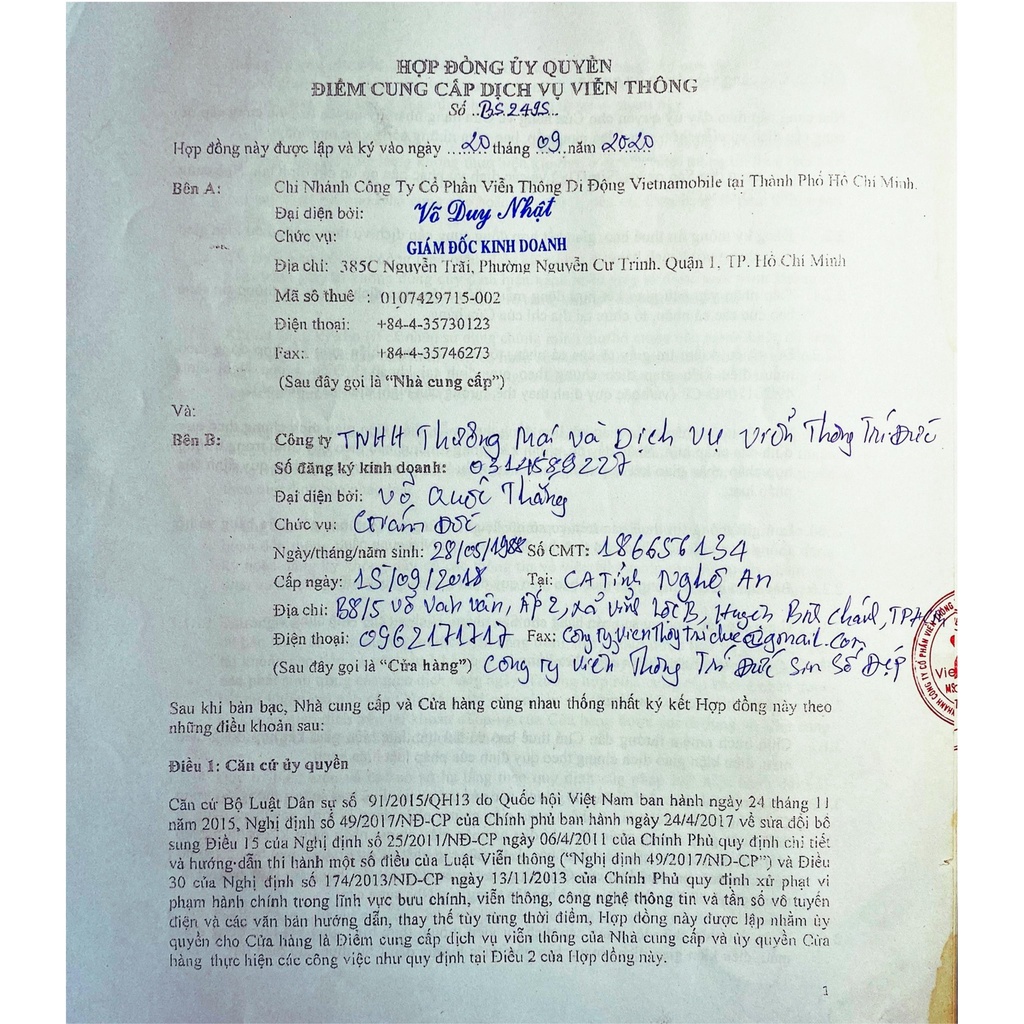 HỢP ĐỒNG ỦY QUYỀN
ĐIỂM CUNG CẤP DỊCH VỤ VIỄN THÔNG
Số ..BS2495...
Hợp đồng này được lập và ký vào ngày ......20 tháng 09..năm 2020
Bên A: Chi Nhánh Công Ty Cổ Phần Viễn Thông Di Động Vietnamobile tại Thành Phố Hồ Chí Minh.
Đại diện bởi: Võ Duy Nhật
Chức vụ: GIÁM ĐỐC KINH DOANH
Địa chỉ: 385C Nguyễn Trãi, Phường Nguyễn Cư Trinh. Quận 1, TP. Hồ Chí Minh
Mã số thuế : 0107429715-002
Điện thoại: +84-4-35730123
Fax: +84-4-35746273
(Sau đây gọi là “Nhà cung cấp”)
Và:
Bên B: Công ty TNHH Thương Mại và Dịch vụ viễn Thông Trí Đức
Số đăng ký kinh doanh: 0314589227
Đại diện bởi: Võ Quốc Thắng
Chức vụ: Giám Đốc
Ngày/tháng/năm sinh: 28/05/1988 Số CMT: 186656134
Cấp ngày: 15/09/2018 Tại: CA Tỉnh Nghệ An
Địa chỉ: B8/5 Võ Văn Vân, ẤP 2, xã Vĩnh Lộc B, Huyện Bình Chánh, TPHCM
Điện thoại: 0962171717 Fax: congtyvienthongtriduc@gmail.com
(Sau đây gọi là “Cửa hàng”) Công ty Viễn Thông Trí Đức Sim Số Đẹp
Sau khi bàn bạc, Nhà cung cấp và Cửa hàng cùng nhau thống nhất ký kết Hợp đồng này theo
những điều khoản sau:
Điều 1: Căn cứ ủy quyền
Căn cứ Bộ Luật Dân sự số 91/2015/QH13 do Quốc hội Việt Nam ban hành ngày 24 tháng 11
năm 2015, Nghị định số 49/2017/NĐ-CP của Chính phủ ban hành ngày 24/4/2017 về sửa đổi bổ
sung Điều 15 của Nghị định số 25/2011/NĐ-CP ngày 06/4/2011 của Chính Phủ quy định chi tiết
và hướng dẫn thi hành một số điều của Luật Viễn thông (“Nghị định 49/2017/NĐ-CP”) và Điều
30 của Nghị định số 174/2013/NĐ-CP ngày 13/11/2013 của Chính Phủ quy định xử phạt vi
phạm hành chính trong lĩnh vực bưu chính, viễn thông, công nghệ thông tin và tần số vô tuyến
điện và các văn bản hướng dẫn, thay thế tùy từng thời điểm, Hợp đồng này được lập nhằm ủy
quyền cho Cửa hàng là Điểm cung cấp dịch vụ viễn thông của Nhà cung cấp và ủy quyền Cửa
hàng thực hiện các công việc như quy định tại Điều 2 của Hợp đồng này.
1